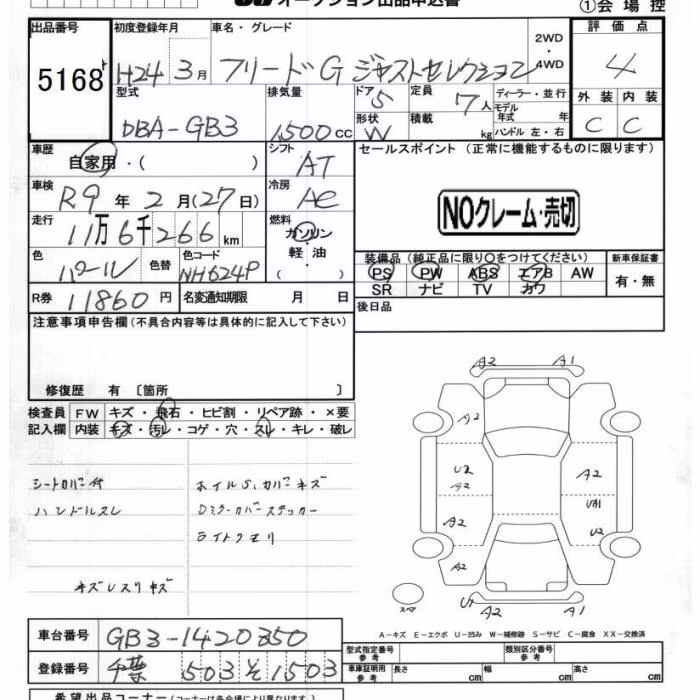 オークション出品申込書
①会場控
出品番号 初度登録年月 車名・グレード 2WD・4WD 評価点
5168 H24 3月 フリードG ジャストセレクション 4
型式 排気量 ドア 定員 ディーラー・並行 外装 内装
DBA-GB3 1500cc 5 7人 モデル年式 年 C C
形状 W 積載 kg ハンドル 左・右
車歴 シフト セールスポイント (正常に機能するものに限ります)
自家用・( ) AT
車検 冷房
R9年2月(27日) AC
NOクレーム・売切
走行 燃料
11万6千266km ガソリン・軽油・( )
色 色替 色コード 装備品 (純正品に限り○をつけてください) 新車保証書
パール NH624P PS PW ABS エアB AW 有・無
SR ナビ TV カワ
R券 11860円 名変通知期限 月 日 後日品
注意事項申告欄 (不具合内容等は具体的に記入して下さい)
修復歴 有 〔箇所 〕
検査員 FW キズ・飛石・ヒビ割・リペア跡・×要
記入欄 内装 キズ・汚レ・コゲ・穴・スレ・キレ・破レ
シートカバー付 ホイルS,カバーキズ
ハンドルスレ Dミラーカバーステッカー
ライトクモリ
キズレスリキズ
A2 A1
A2
U2 A2 A2
A2 UA1
U2
A2
スペア U1 A2 A1
A-キズ E-エクボ U-凹み W-補修跡 S-サビ C-腐食 XX-交換済
車台番号 GB3-1420350
登録番号 千葉 503 そ 1503
型式指定番号 参考 類別区分番号 参考
車庫証明用 参考 長さ cm 幅 cm 高さ cm
希望出品コーナー (コーナーは各会場により異なります)